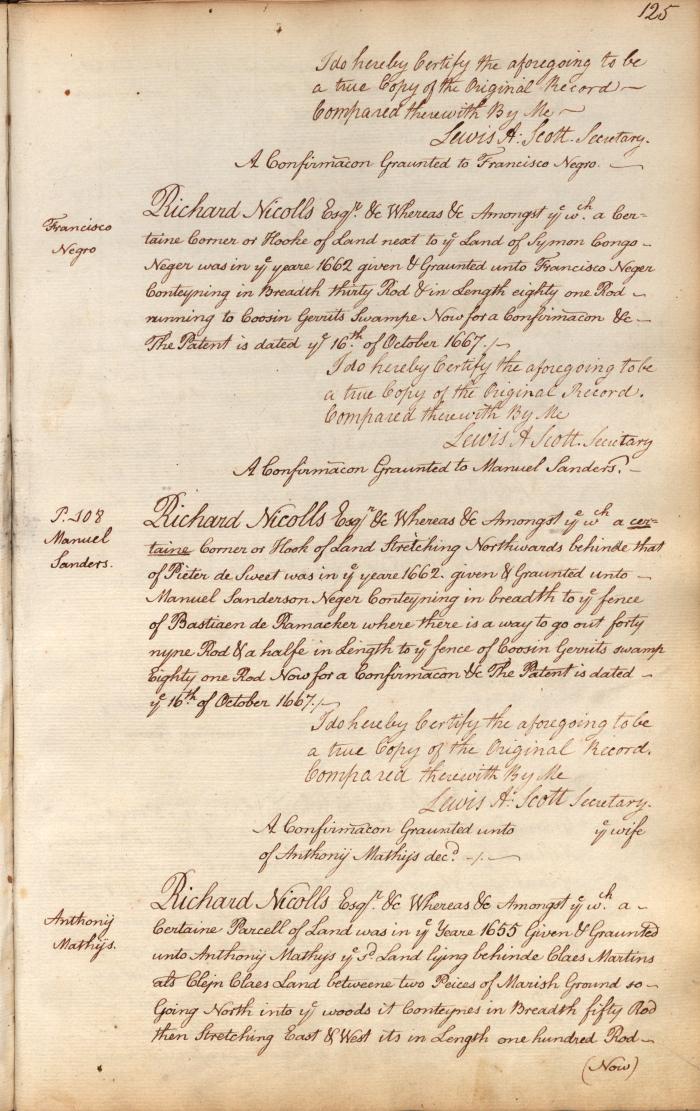 125
I do hereby Certify the aforegoing to be
a true Copy of the Original Record
Compared therewith By Me
Lewis A: Scott. Secretary.
A Confirmacon Graunted to Francisco Negro.
Francisco
Negro
Richard Nicolls Esqr. &c Whereas &c Amongst ye wch. a Cer=
taine Corner or Hooke of Land next to ye Land of Symon Congo
Neger was in ye yeare 1662 given & Graunted unto Francisco Neger
Conteyning in Breadth thirty Rod & in Length eighty one Rod
running to Coosin Gerrits Swampe Now for a Confirmacon &c
The Patent is dated ye 16th of October 1667.
I do hereby Certify the aforegoing to be
a true Copy of the Original Record.
Compared therewith By Me
Lewis A Scott. Secretary
A Confirmacon Graunted to Manuel Sanders.
P. 108
Manuel
Sanders.
Richard Nicolls Esqr &c Whereas &c Amongst ye wch a cer=
taine Corner or Hook of Land Stretching Northwards behinde that
of Pieter de Sweet was in ye yeare 1662. given & Graunted unto
Manuel Sanderson Neger Conteyning in breadth to ye fence
of Bastiaen de Ramacker where there is a way to go out forty
nyne Rod & a halfe in Length to ye fence of Coosin Gerrits swamp
Eighty one Rod Now for a Confirmacon &c The Patent is dated
ye 16th of October 1667.
I do hereby Certify the aforegoing to be
a true Copy of the Original Record.
Compared therewith By Me
Lewis A: Scott Secretary.
A Confirmacon Graunted unto ye wife
of Anthonij Mathijs decd.
Anthonij
Mathijs.
Richard Nicolls Esqr. &c Whereas &c Amongst ye wch. a
Certaine Parcell of Land was in ye Yeare 1655 Given & Graunted
unto Anthonij Mathys ye sd Land lying behinde Claes Martins
als Clejn Claes Land betweene two Peices of Marish Ground so
Going North into ye woods it Conteynes in Breadth fifty Rod
then Stretching East & West its in Length one hundred Rod
(Now)